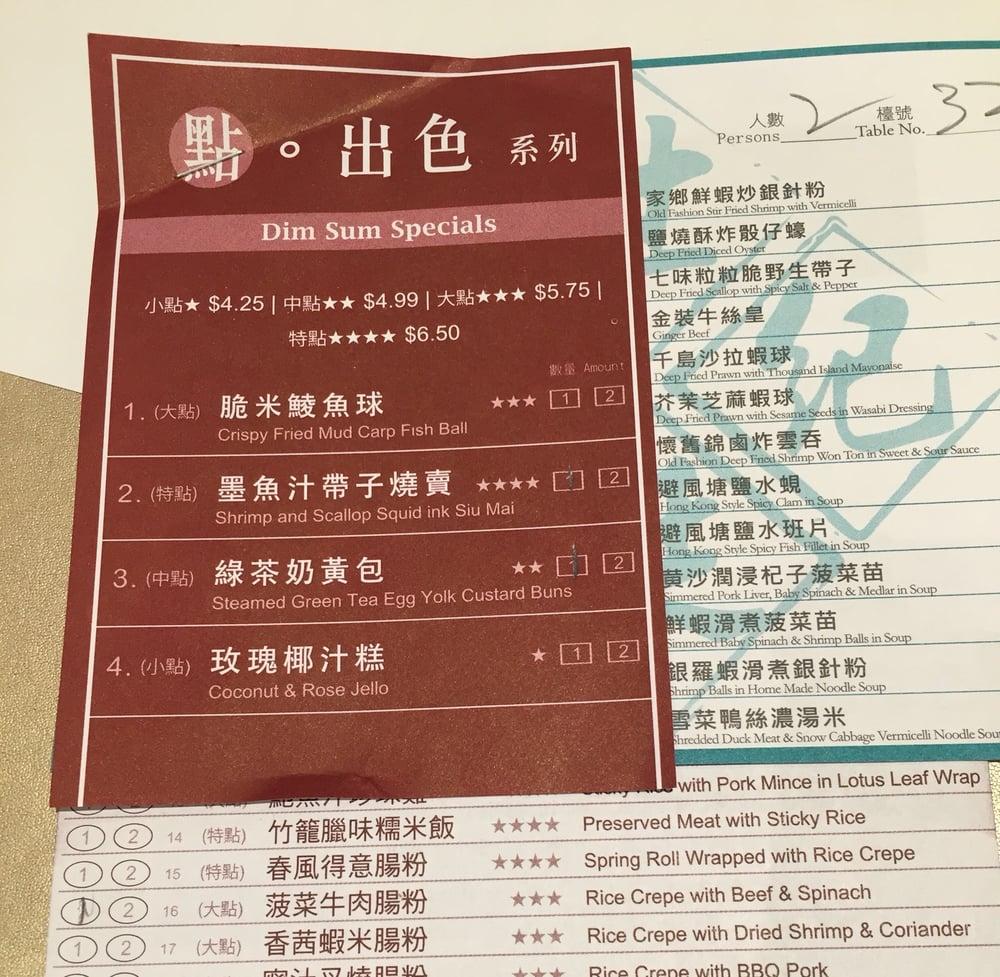 點。出色 系列
Dim Sum Specials
小點★ $4.25 | 中點★★ $4.99 | 大點★★★ $5.75 |
特點★★★★ $6.50
數量 Amount
1. (大點) 脆米鯪魚球 ★★★ 1 2
Crispy Fried Mud Carp Fish Ball
2. (特點) 墨魚汁帶子燒賣 ★★★★ 1 2
Shrimp and Scallop Squid ink Siu Mai
3. (中點) 綠茶奶黃包 ★★ 1 2
Steamed Green Tea Egg Yolk Custard Buns
4. (小點) 玫瑰椰汁糕 ★ 1 2
Coconut & Rose Jello
人數 檯號
Persons 2 Table No. 32
家鄉鮮蝦炒銀針粉
Old Fashion Stir Fried Shrimp with Vermicelli
鹽燒酥炸骰仔蠔
Deep Fried Diced Oyster
七味粒粒脆野生帶子
Deep Fried Scallop with Spicy Salt & Pepper
金裝牛絲皇
Ginger Beef
千島沙拉蝦球
Deep Fried Prawn with Thousand Island Mayonaise
芥茉芝蔴蝦球
Deep Fried Prawn with Sesame Seeds in Wasabi Dressing
懷舊錦鹵炸雲吞
Old Fashion Deep Fried Shrimp Won Ton in Sweet & Sour Sauce
避風塘鹽水蜆
Hong Kong Style Spicy Clam in Soup
避風塘鹽水班片
Hong Kong Style Spicy Fish Fillet in Soup
黄沙潤浸杞子菠菜苗
Simmered Pork Liver, Baby Spinach & Medlar in Soup
鮮蝦滑煮菠菜苗
Simmered Baby Spinach & Shrimp Balls in Soup
銀羅蝦滑煮銀針粉
Shrimp Balls in Home Made Noodle Soup
雪菜鴨絲濃湯米
Shredded Duck Meat & Snow Cabbage Vermicelli Noodle Soup
with Pork Mince in Lotus Leaf Wrap
1 2 14 (特點) 竹籠臘味糯米飯 ★★★★ Preserved Meat with Sticky Rice
1 2 15 (特點) 春風得意腸粉 ★★★★ Spring Roll Wrapped with Rice Crepe
1 2 16 (大點) 菠菜牛肉腸粉 ★★★ Rice Crepe with Beef & Spinach
1 2 17 (大點) 香茜蝦米腸粉 ★★★ Rice Crepe with Dried Shrimp & Coriander
蜜汁叉燒腸粉 ★★★ Rice Crepe with BBQ Pork